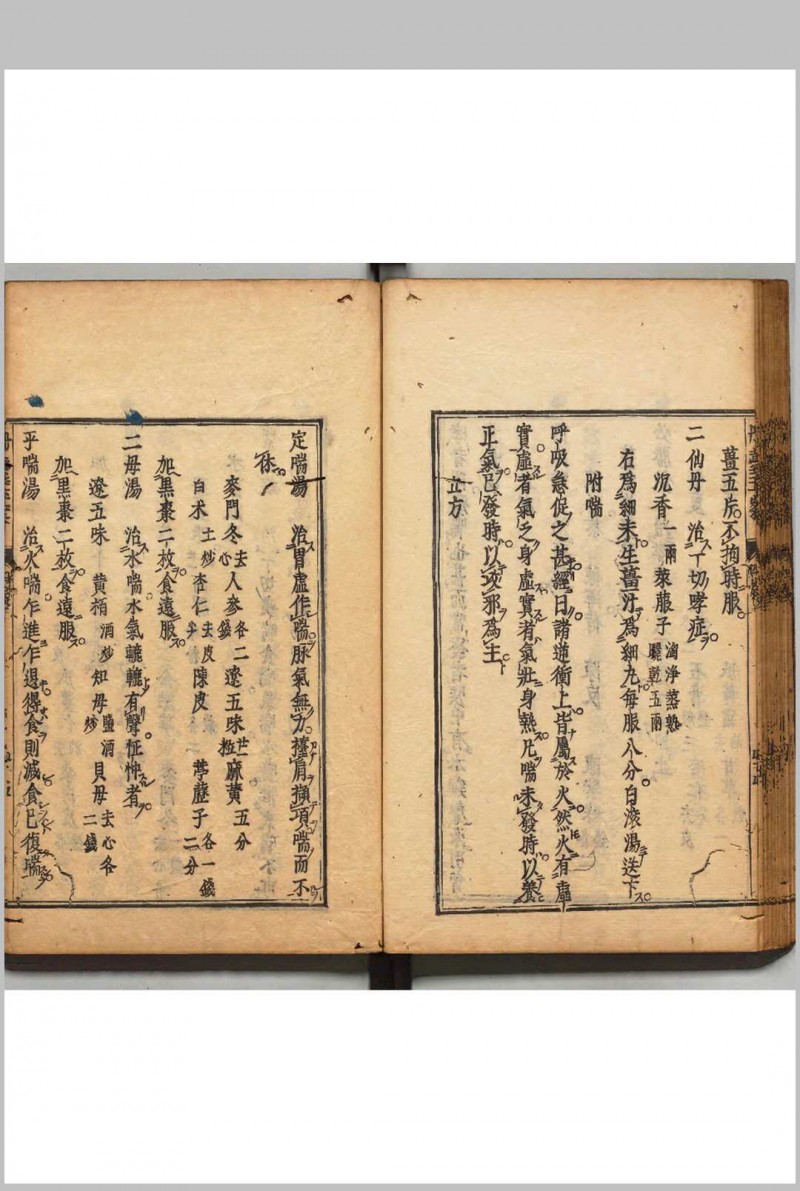 薑五片不拘時服
二仙丹　治一切哮症
沉香一兩　萊菔子淘淨蒸熟曬乾五兩
右爲細末生薑汁爲細丸每服八分白滾湯送下
附喘
呼吸急促之甚經曰諸逆衝上皆屬於火然火有虛
實虛者氣乏身虛實者氣壯身熱凡喘未發時以養
正氣已發時以攻邪爲主
立方
定喘湯　治胃虛作喘脉氣無力擡肩擷項喘而不
休
麥門冬去心　人參各二錢　遼五味廿一粒　麻黃五分
白朮土炒　杏仁去皮尖　陳皮　葶藶子各一錢二分
加黑棗二枚食遠服
二母湯　治水喘水氣轆轆有聲怔忡者
遼五味　黃栢酒炒　知母鹽酒炒　貝母去心各二錢
加黑棗二枚食遠服
平喘湯　治火喘乍進乍退得食則減食已復喘